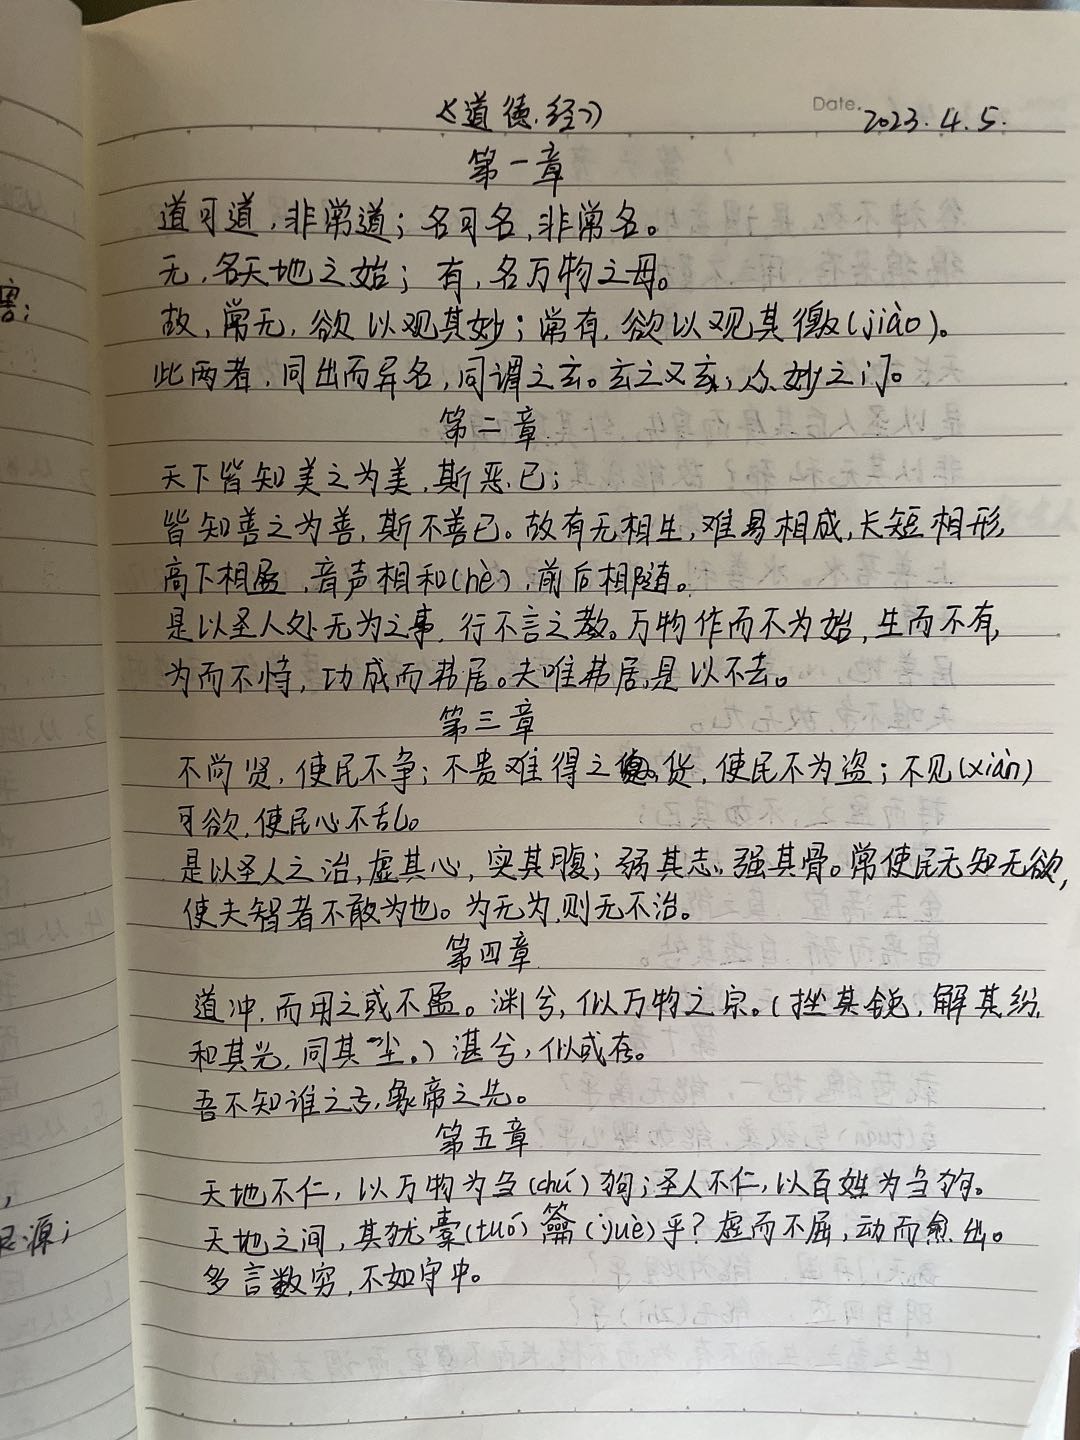 《道德经》
Date. 2023.4.5.
第一章
道可道,非常道;名可名,非常名。
无,名天地之始;有,名万物之母。
故,常无,欲以观其妙;常有,欲以观其徼(jiào)。
此两者,同出而异名,同谓之玄。玄之又玄;众妙之门。
第二章
天下皆知美之为美,斯恶已;
皆知善之为善,斯不善已。故有无相生,难易相成,长短相形,
高下相盈,音声相和(hè),前后相随。
是以圣人处无为之事,行不言之教。万物作而不为始,生而不有,
为而不恃,功成而弗居。夫唯弗居,是以不去。
第三章
不尚贤,使民不争;不贵难得之货,使民不为盗;不见(xiàn)
可欲,使民心不乱。
是以圣人之治,虚其心,实其腹;弱其志,强其骨。常使民无知无欲,
使夫智者不敢为也。为无为,则无不治。
第四章
道冲,而用之或不盈。渊兮,似万物之宗。(挫其锐,解其纷,
和其光,同其尘。)湛兮,似或存。
吾不知谁之子,象帝之先。
第五章
天地不仁,以万物为刍(chú)狗;圣人不仁,以百姓为刍狗。
天地之间,其犹橐(tuó)籥(yuè)乎?虚而不屈,动而愈出。
多言数穷,不如守中。
害;
源;